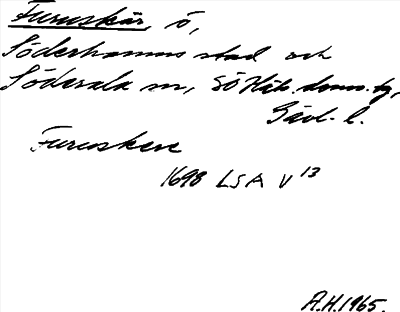 Furuskär, ö,
Söderhamns stad och
Söderala sn, SÖ Häls. doms. tg,
Gävl. l.
Furuskere
1698 LSA V 13
A.H. 1965.